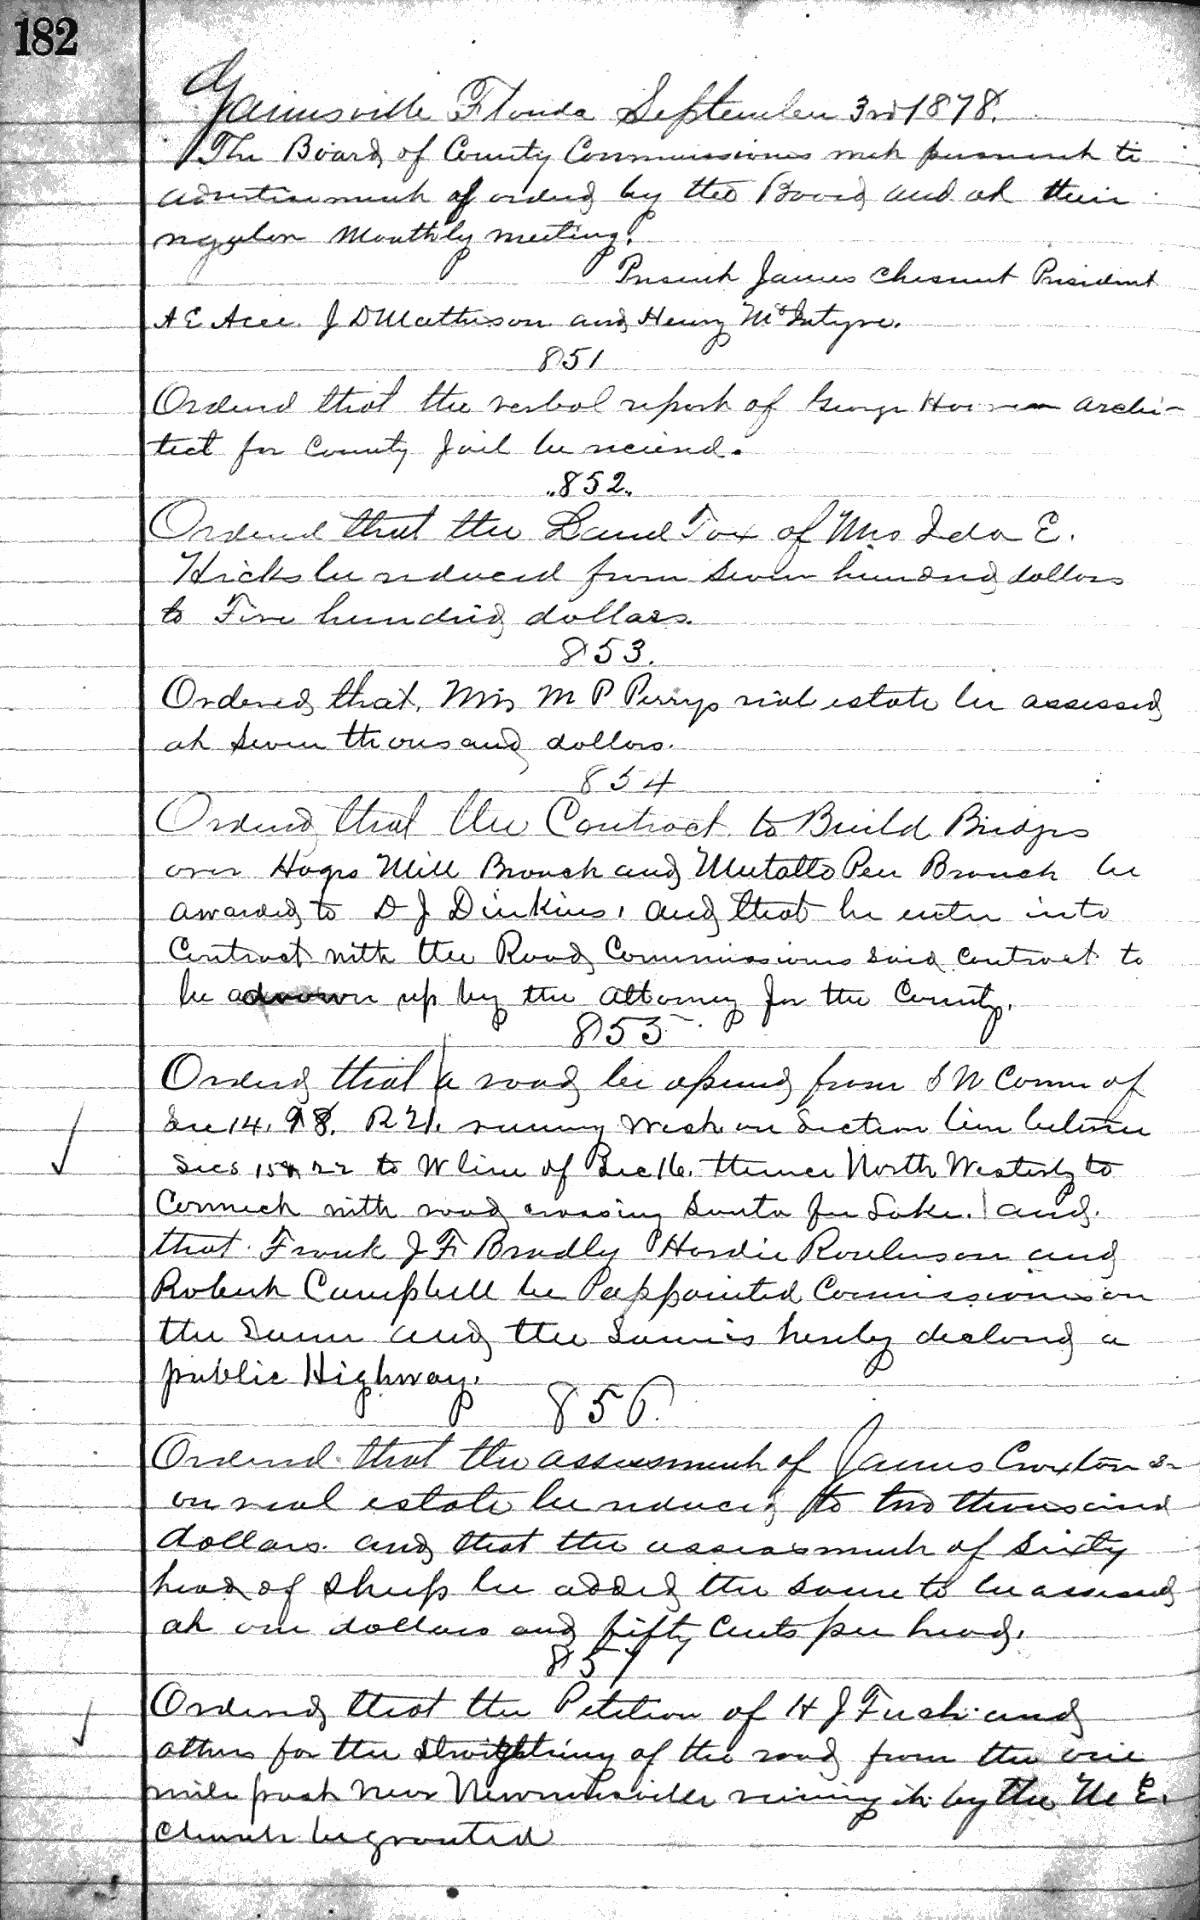 182
Gainesville Florida September 3rd 1878.
The Board of County Commissioners met pursuant to
advertisement of orderd by the Board and at their
regular Monthly meeting.
Present James Chesnut President
J D Matheson and Henry McIntyre.
851
Ordered that the verbal report of George archi-
tect for County Jail be recieved.
852
Ordered that the Land Tax of Mrs Ida E.
Hicks be reduced from Seven hundred dollars
to Five hundred dollars.
853.
Ordered that, Mrs M P Perrys real estate be assessed
at Seven thousand dollars.
854
Ordered that the Contract to Build Bridges
over Hogs Mill Branch and Mulatto Pen Branch be
awarded to D J Dinkins, and that he enter into
Contract with the Road Commissioners said contract to
be drawn up by the attorney for the County.
855
Ordered that a road be opened from S W Corner of
Sec 14, 98. R 21. running West on Section line between
Secs 15 & 22 to W line of Sec 16. thence North Westerly to
Connect with road crossing Santa fee Lake. and
that Frank J F Bradly Hardie Rowlinson and
Robert Campbell be appointed Commissioners on
the Same and the Same is hereby declared a
public Highway.
856
Ordered that the assessment of James Croxton Sr
on real estate be reduced to two thousand
dollars and that the assessment of Sixty
head of Sheep be added the same to be assessed
at one dollars and fifty Cents per head.
857
Ordered that the Petition of H J and
others for the Straightning of the road from the one
mile post near Newnansville running it by the M E.
Church be granted